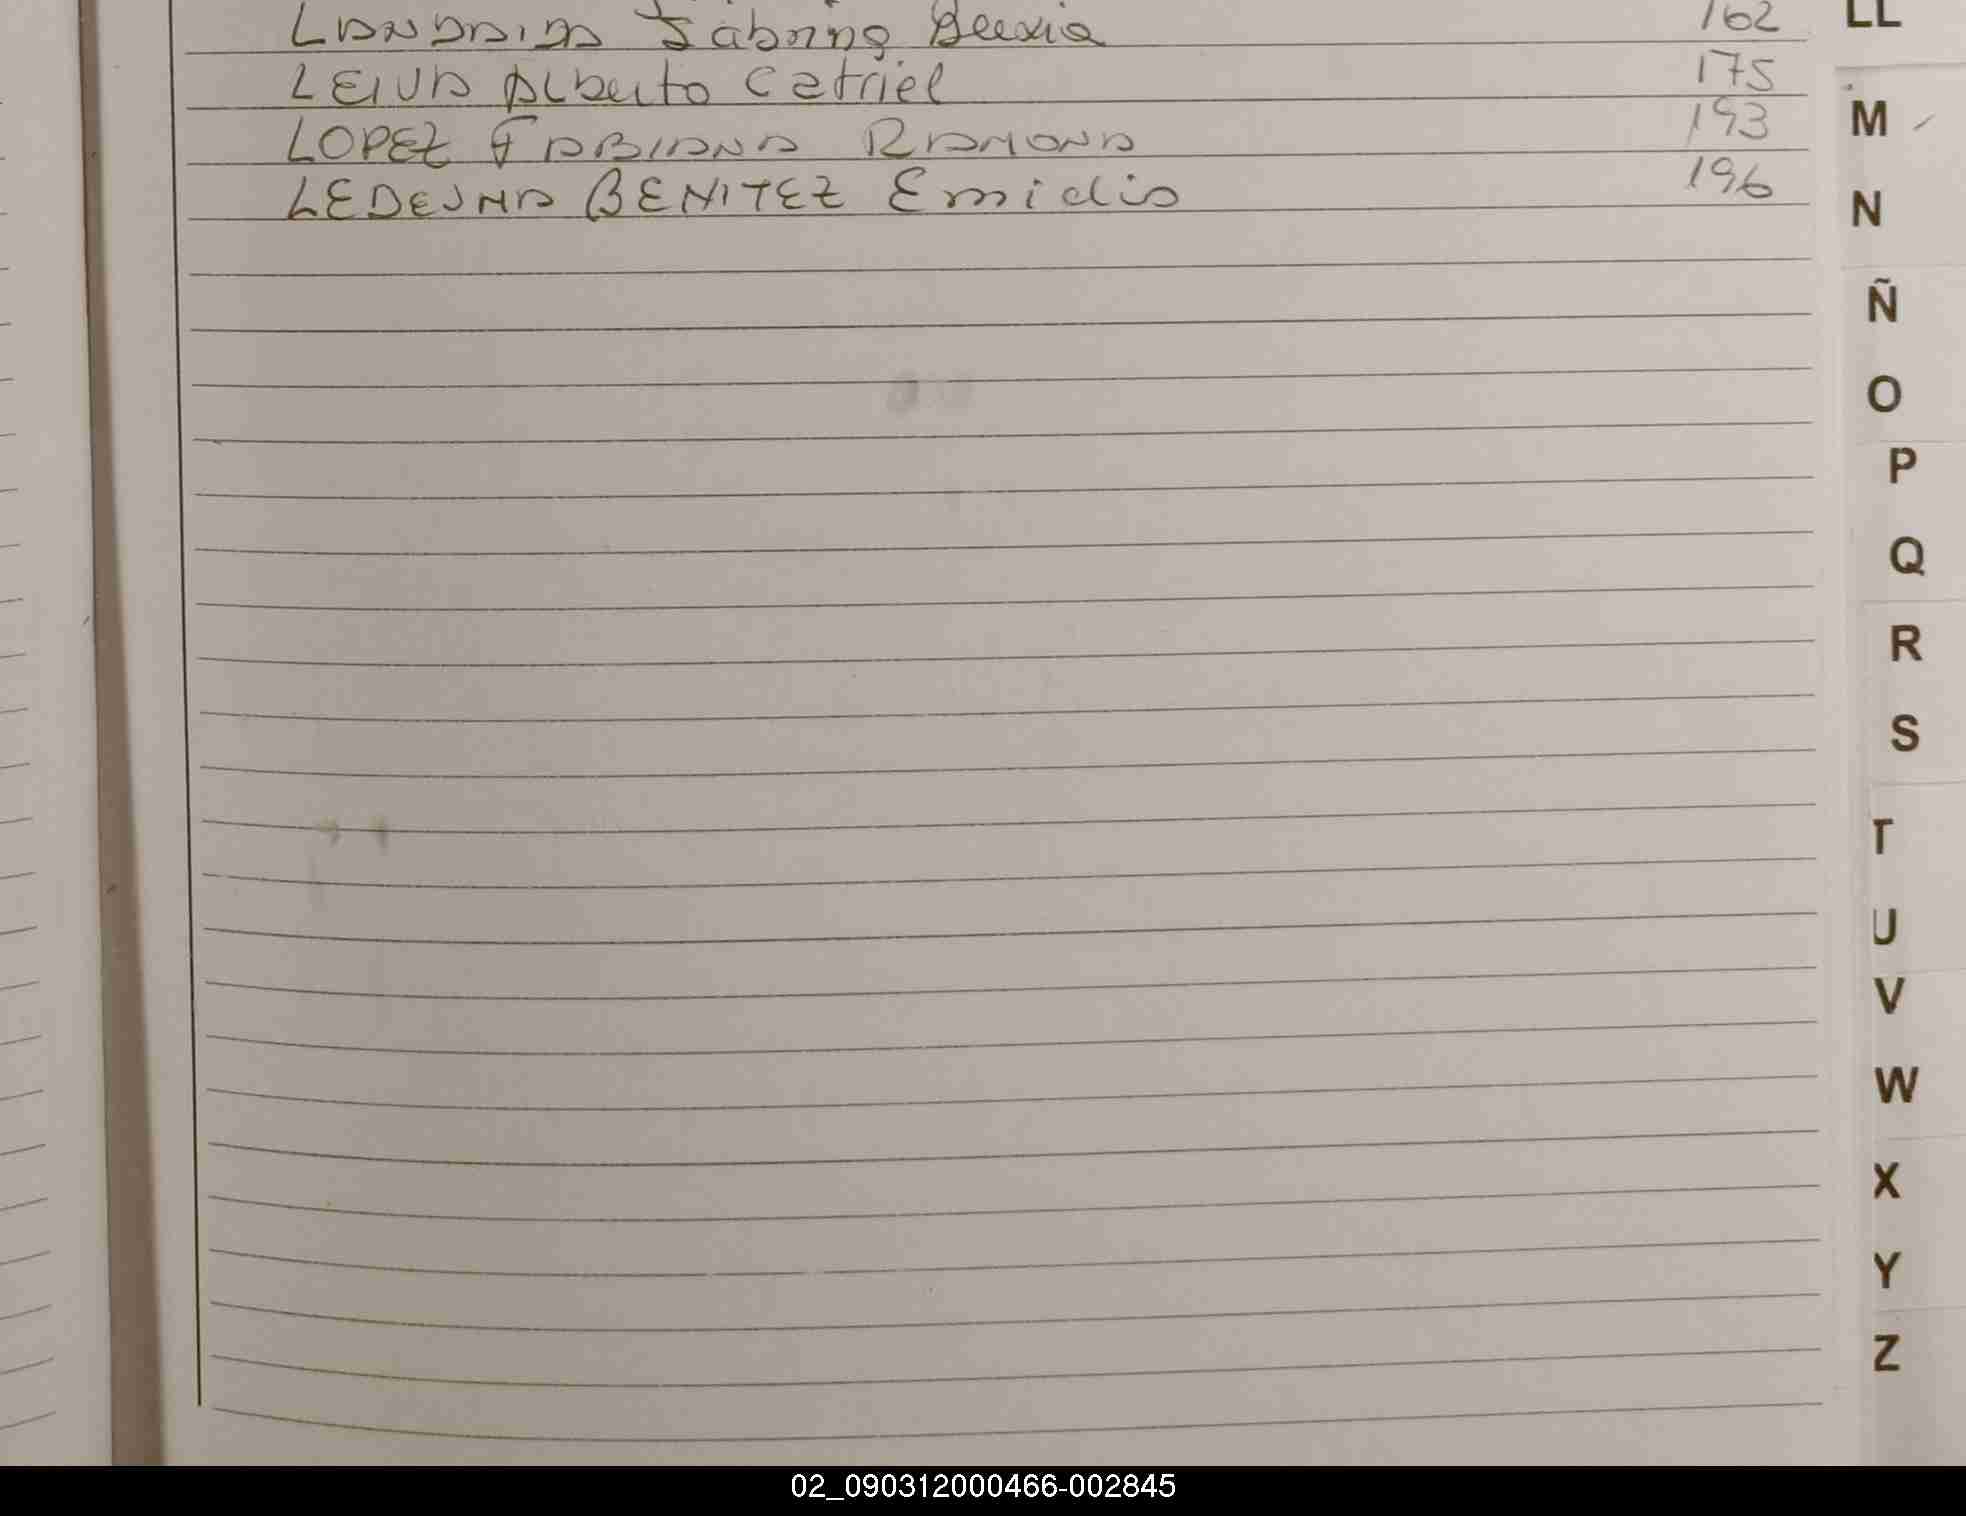 LANDAIDA Sabrina Alexia 162
LEIVA Alberto Catriel 175
LOPEZ FABIANA RAMONA 193
LEDESMA BENITEZ Emidio 196
LL
M
N
Ñ
O
P
Q
R
S
T
U
V
W
X
Y
Z
02_090312000466-002845